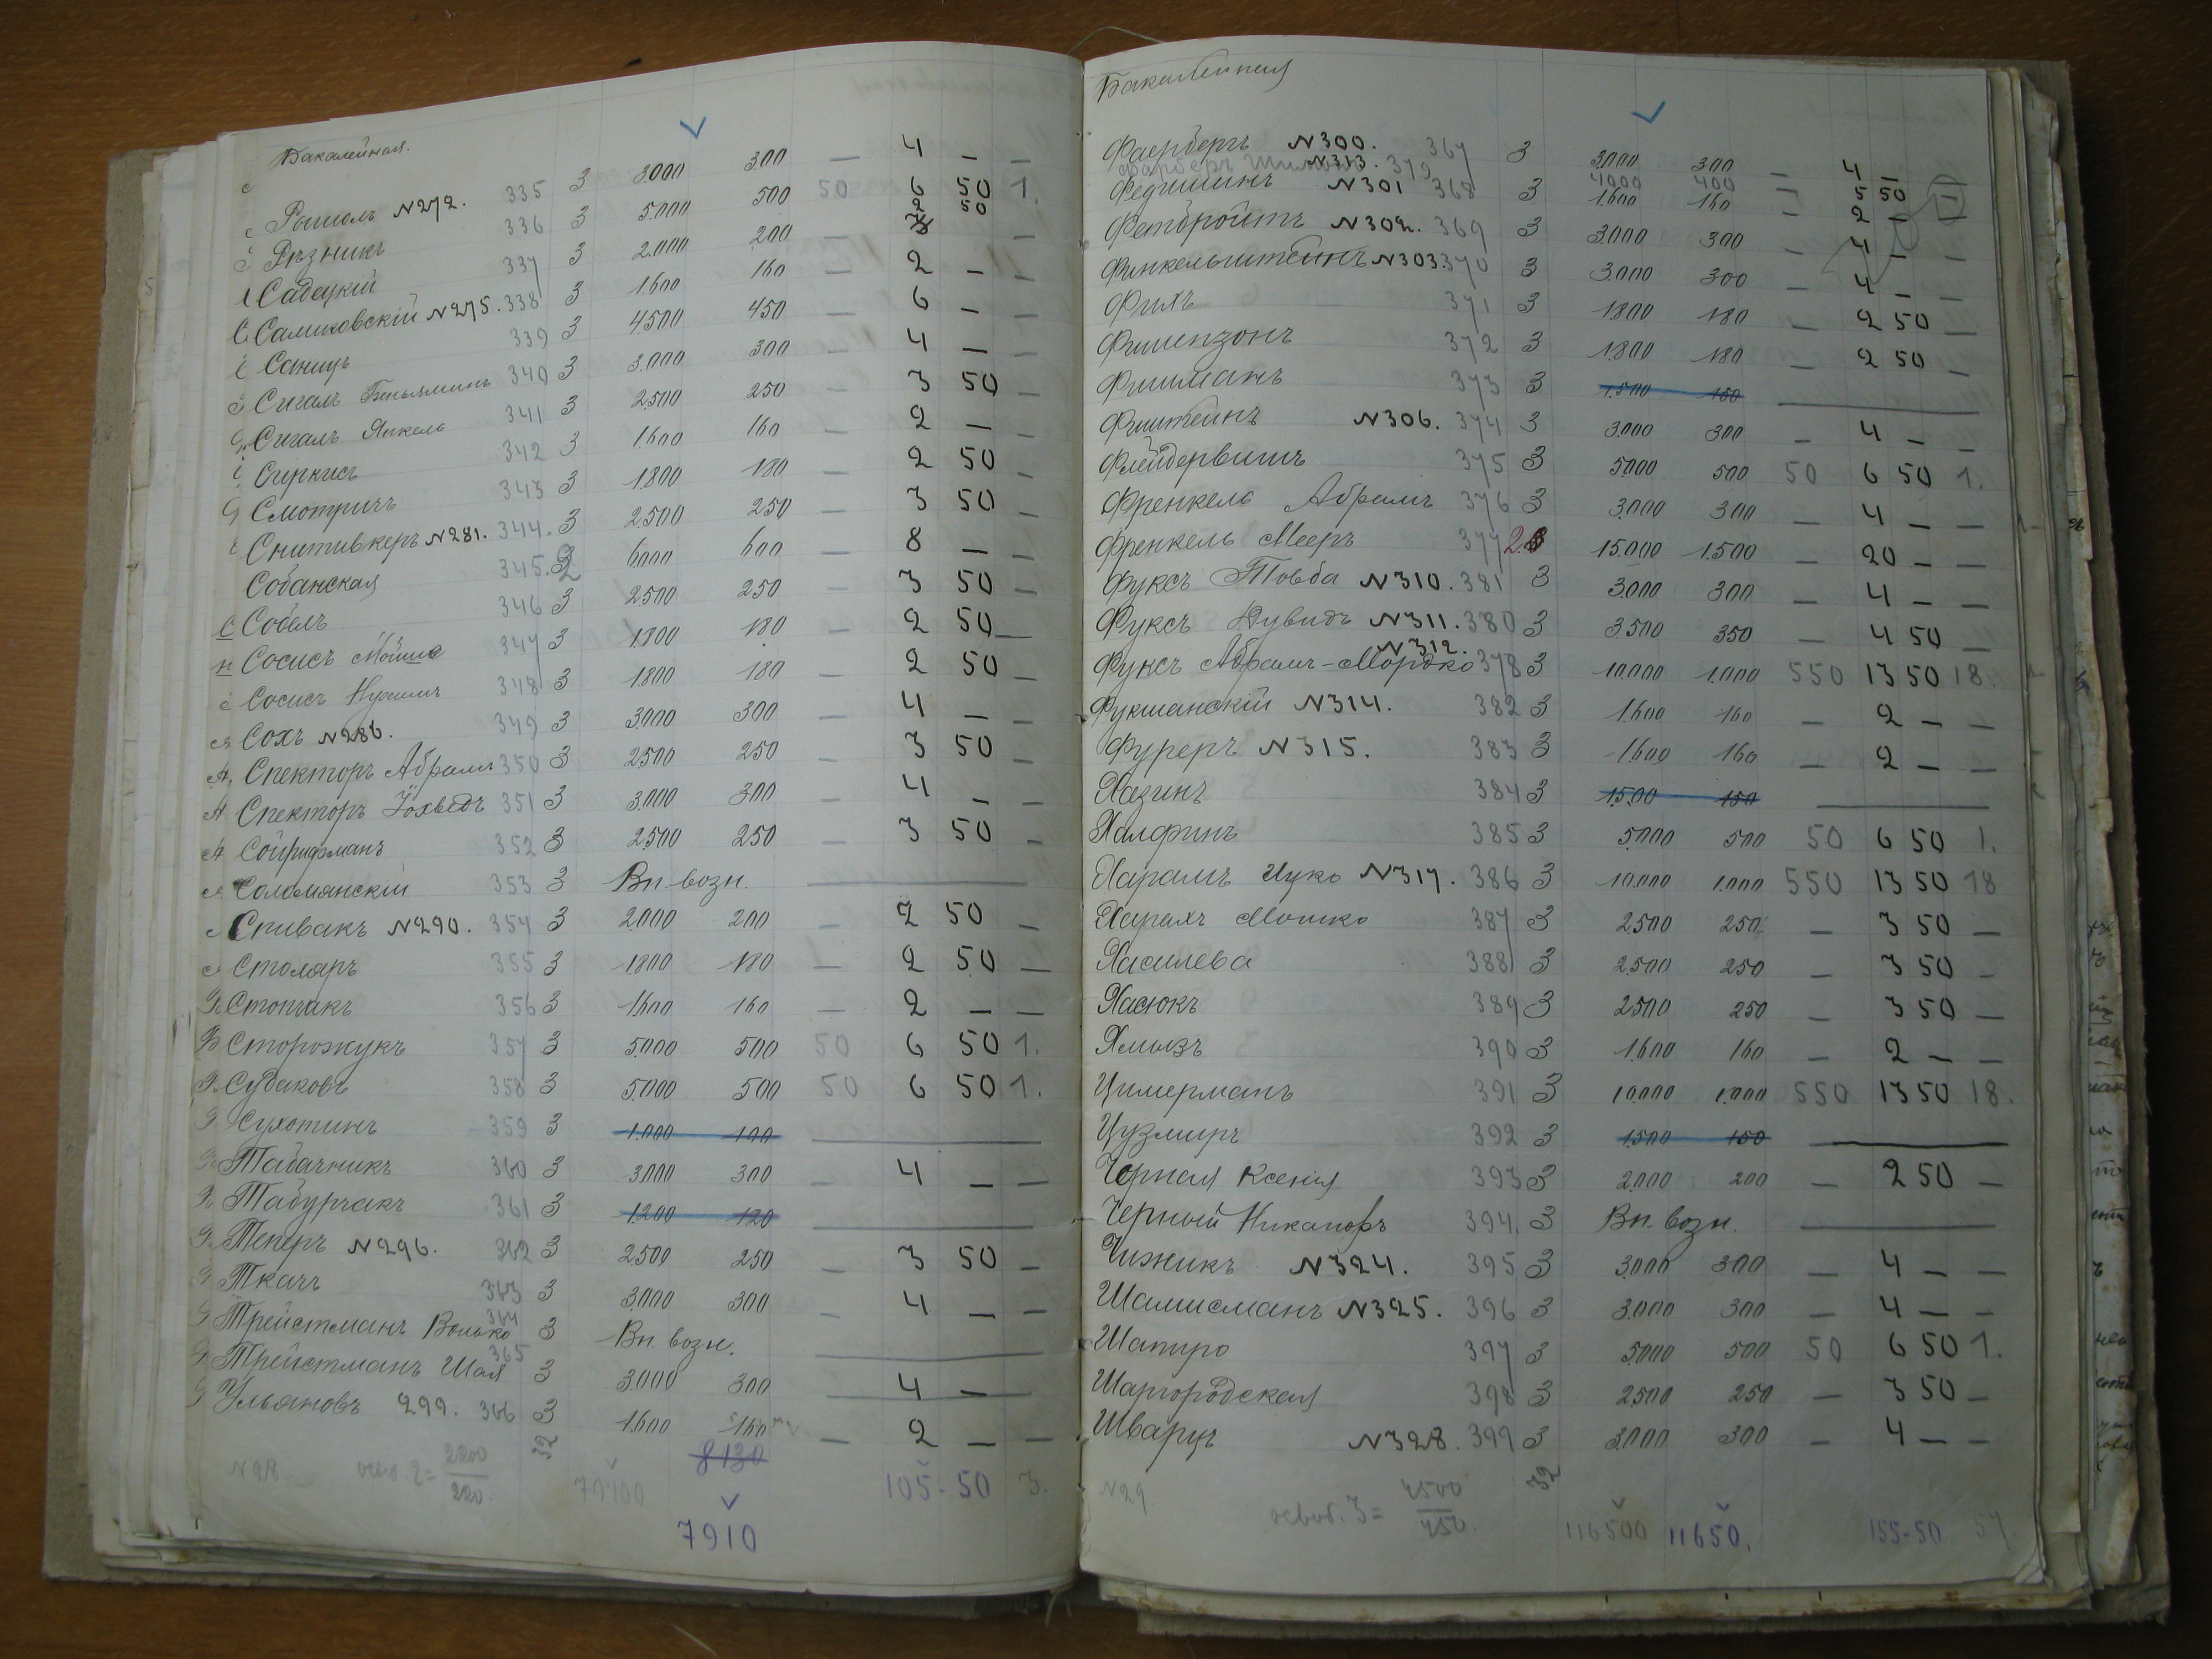 Бакалейная.
Рашаль N272. 335 3 3.000 300 — 4 — —
Рѣзникъ 336 3 5.000 500 50 6 50 1.
Садецкій 337 3 2.000 200 — 2 50 —
Самиковскій N275. 338 3 1.600 160 — 2 — —
Саницъ 339 3 4.500 450 — 6 — —
Сигалъ Беньяминъ 340 3 3.000 300 — 4 — —
Сигалъ Янкель 341 3 2.500 250 — 3 50 —
Сиркисъ 342 3 1.600 160 — 2 — —
Смотричъ 343 3 1.800 180 — 2 50 —
Снитивкеръ N281. 344. 3 2.500 250 — 3 50 —
Собанская 345. 2 6.000 600 — 8 — —
Собель 346 3 2.500 250 — 3 50 —
Сосисъ Мойше 347 3 1.800 180 — 2 50 —
Сосисъ Нухимъ 348 3 1.800 180 — 2 50 —
Сохъ N286. 349 3 3.000 300 — 4 — —
Спекторъ Абрамъ 350 3 2.500 250 — 3 50 —
Спекторъ Іохведъ 351 3 3.000 300 — 4 — —
352 3 2.500 250 — 3 50 —
Соломянскій 353 3 Вп. возн.
Спивакъ N290. 354 3 2.000 200 — 2 50 —
Столяръ 355 3 1.800 180 — 2 50 —
Стопчакъ 356 3 1.600 160 — 2 — —
Сторожукъ 357 3 5.000 500 50 6 50 1.
Судаковъ 358 3 5.000 500 50 6 50 1.
Сухотинъ 359 3 1.000 100
Табачникъ 360 3 3.000 300 4 — —
Табурчакъ 361 3 1.200 120
Теперъ N296. 362 3 2.500 250 — 3 50 —
Ткачъ 363 3 3.000 300 — 4 — —
Трейстманъ Волько 364 3 Вп. возн.
Трейстманъ Шая 365 3 3.000 300 — 4 —
Ульяновъ 299. 366 3 1.600 160 — 2 — —
32 8130
N28 освоб. 2 = 2200 / 220. 79100 105-50 3.
7910
Бакалейная
Фаербергъ N300. 367 3 3.000 300 — 4 —
Фарберъ N313. 379 4000 400 — 5 50 —
Федишинъ N301 368 3 1.600 160 — 2 — —
Фетбройтъ N302. 369 3 3.000 300 — 4 — —
Финкельштейнъ N303. 370 3 3.000 300 — 4 — —
Фихъ 371 3 1.800 180 — 2 50 —
Фишензонъ 372 3 1.800 180 — 2 50 —
Фишманъ 373 3 1.500 150
Фиштейнъ N306. 374 3 3.000 300 — 4 — —
Флейдервишъ 375 3 5.000 500 50 6 50 1.
Френкель Абрамъ 376 3 3.000 300 — 4 — —
Френкель Мееръ 377 2. 15.000 1.500 — 20 — —
Фуксъ Товба N310. 381 3 3.000 300 — 4 — —
Фуксъ Дувидъ N311. 380 3 3.500 350 — 4 50 —
N312.
Фуксъ Абрамъ-Мордко 378 3 10.000 1.000 550 13 50 18.
Фукшанскій N314. 382 3 1.600 160 — 2 — —
Фуреръ N315. 383 3 1.600 160 — 2 — —
Хазинъ 384 3 1.500 150
Халфинъ 385 3 5.000 500 50 6 50 1.
N317. 386 3 10.000 1.000 550 13 50 18
Харахъ Мошко 387 3 2.500 250 — 3 50 —
Хасилева 388 3 2.500 250 — 3 50 —
Хасюкъ 389 3 2.500 250 — 3 50 —
Хмызъ 390 3 1.600 160 — 2 — —
Цимерманъ 391 3 10.000 1.000 550 13 50 18.
Цузмиръ 392 3 1.500 150
Черная Ксенія 393 3 2.000 200 — 2 50 —
Черный Никаноръ 394. 3 Вп. возн.
Чижикъ N324. 395 3 3.000 300 — 4 — —
Шамисманъ N325. 396 3 3.000 300 — 4 — —
Шапиро 397 3 5.000 500 50 6 50 1.
Шаргородская 398 3 2.500 250 — 3 50 —
Шварцъ N328. 399 3 3.000 300 — 4 — —
N29 32
освоб. 3 = 4500 / 450. 116500 11650. 155-50 57.